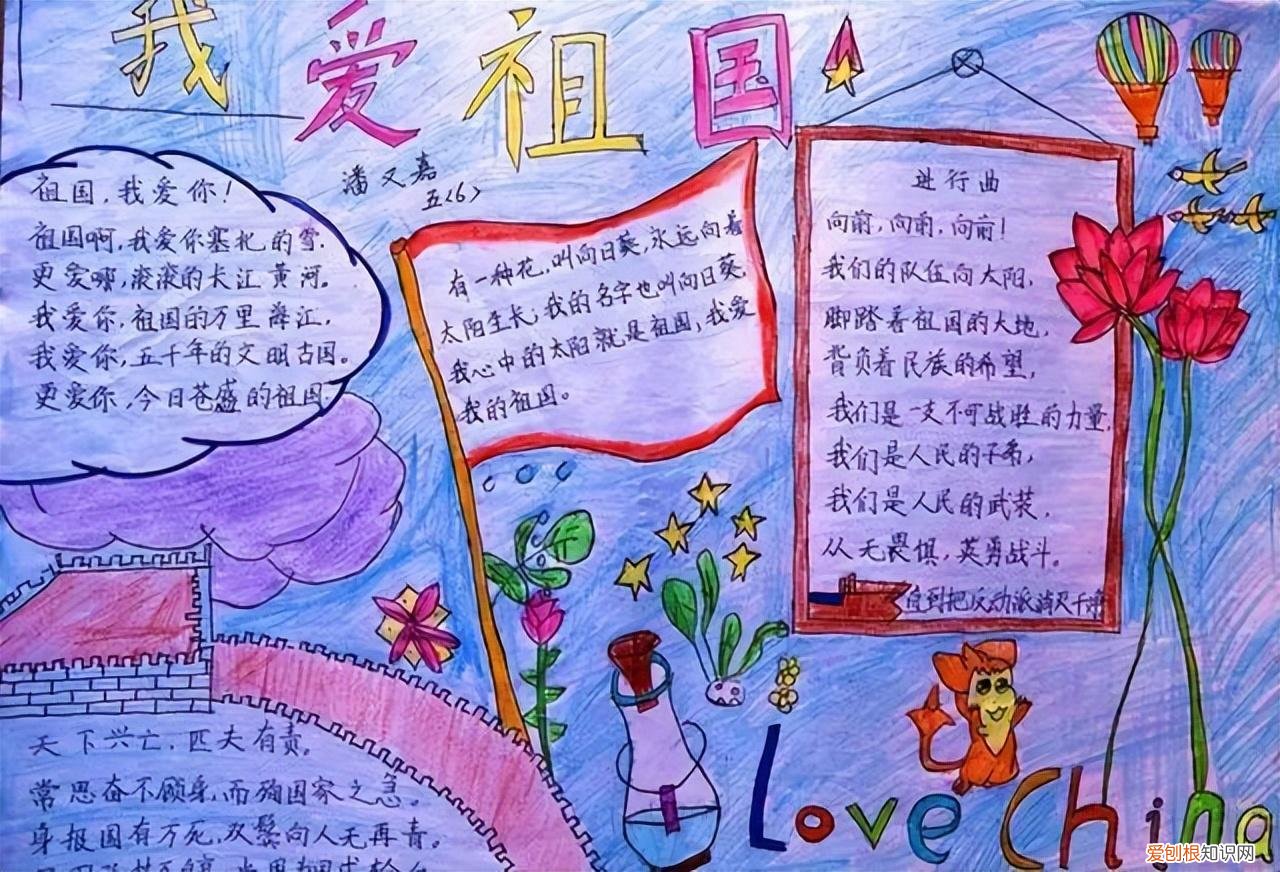 我爱祖国
潘又嘉
五<6>
祖国,我爱你!
祖国啊,我爱你塞北的雪.
更爱哪,滚滚的长江黄河。
我爱你,祖国的万里海江,
我爱你,五千年的文明古国。
更爱你,今日苍盛的祖国.
有一种花,叫向日葵,永远向着
太阳生长;我的名字也叫向日葵.
我心中的太阳就是祖国,我爱
我的祖国。
进行曲
向前,向前,向前!
我们的队伍向太阳,
脚踏着祖国的大地,
背负着民族的希望,
我们是一支不可战胜的力量,
我们是人民的子弟,
我们是人民的武装,
从无畏惧,英勇战斗。
直到把反动派消灭干净
天下兴亡,匹夫有责。
常思奋不顾身,而殉国家之急。
身报国有万死,双鬓向人无再青。
Love China
爱刨根知识网